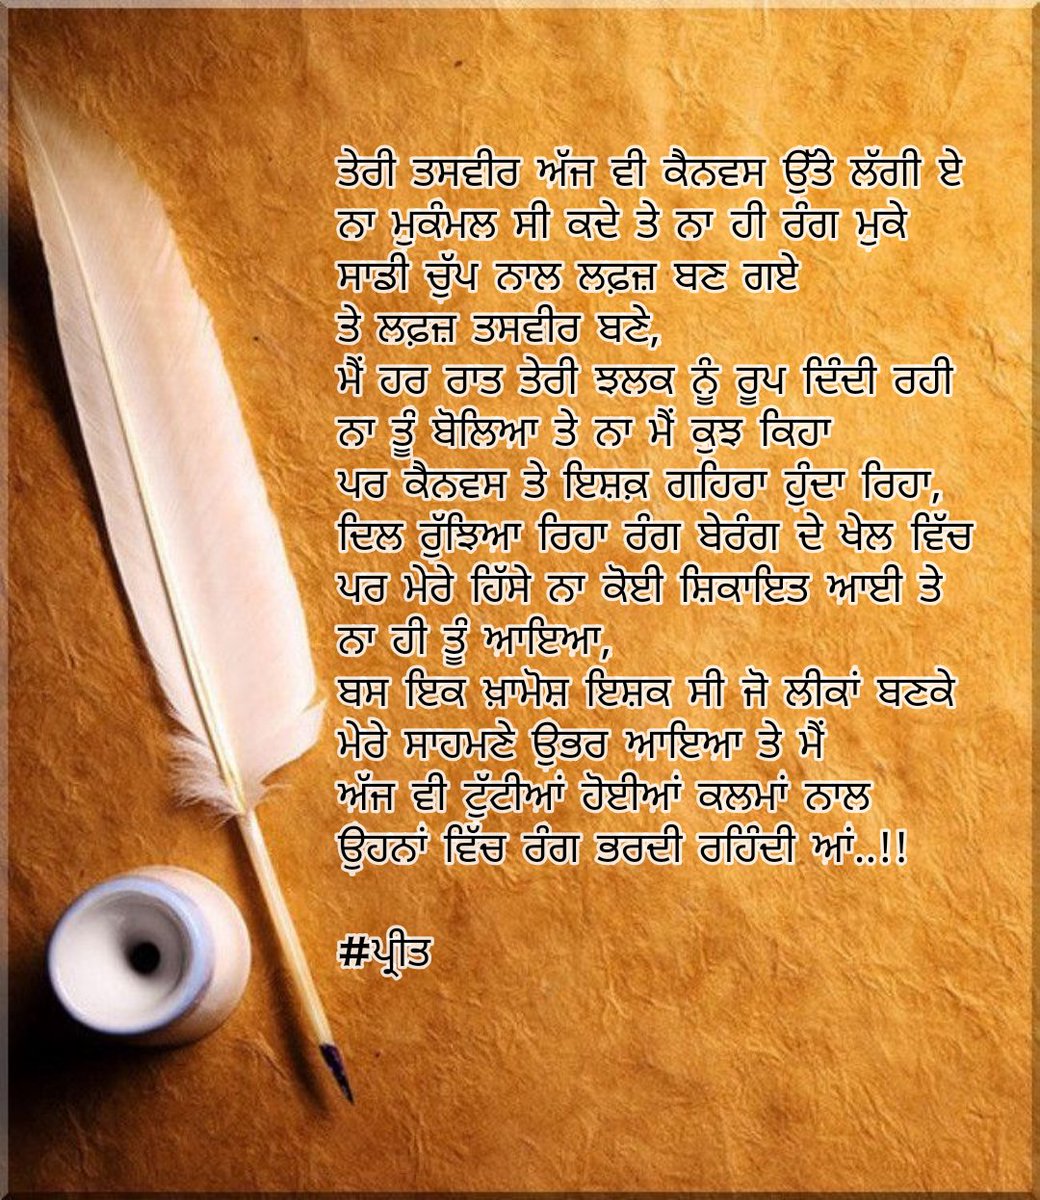 ਤੇਰੀ ਤਸਵੀਰ ਅੱਜ ਵੀ ਕੈਨਵਸ ਉੱਤੇ ਲੱਗੀ ਏ
ਨਾ ਮੁਕੰਮਲ ਸੀ ਕਦੇ ਤੇ ਨਾ ਹੀ ਰੰਗ ਮੁਕੇ
ਸਾਡੀ ਚੁੱਪ ਨਾਲ ਲਫ਼ਜ਼ ਬਣ ਗਏ
ਤੇ ਲਫ਼ਜ਼ ਤਸਵੀਰ ਬਣੇ,
ਮੈਂ ਹਰ ਰਾਤ ਤੇਰੀ ਝਲਕ ਨੂੰ ਰੂਪ ਦਿੰਦੀ ਰਹੀ
ਨਾ ਤੂੰ ਬੋਲਿਆ ਤੇ ਨਾ ਮੈਂ ਕੁਝ ਕਿਹਾ
ਪਰ ਕੈਨਵਸ ਤੇ ਇਸ਼ਕ਼ ਗਹਿਰਾ ਹੁੰਦਾ ਰਿਹਾ,
ਦਿਲ ਰੁੱਝਿਆ ਰਿਹਾ ਰੰਗ ਬੇਰੰਗ ਦੇ ਖੇਲ ਵਿੱਚ
ਪਰ ਮੇਰੇ ਹਿੱਸੇ ਨਾ ਕੋਈ ਸ਼ਿਕਾਇਤ ਆਈ ਤੇ
ਨਾ ਹੀ ਤੂੰ ਆਇਆ,
ਬਸ ਇਕ ਖ਼ਾਮੋਸ਼ ਇਸ਼ਕ ਸੀ ਜੋ ਲੀਕਾਂ ਬਣਕੇ
ਮੇਰੇ ਸਾਹਮਣੇ ਉਭਰ ਆਇਆ ਤੇ ਮੈਂ
ਅੱਜ ਵੀ ਟੁੱਟੀਆਂ ਹੋਈਆਂ ਕਲਮਾਂ ਨਾਲ
ਉਹਨਾਂ ਵਿੱਚ ਰੰਗ ਭਰਦੀ ਰਹਿੰਦੀ ਆਂ..!!
#ਪ੍ਰੀਤ